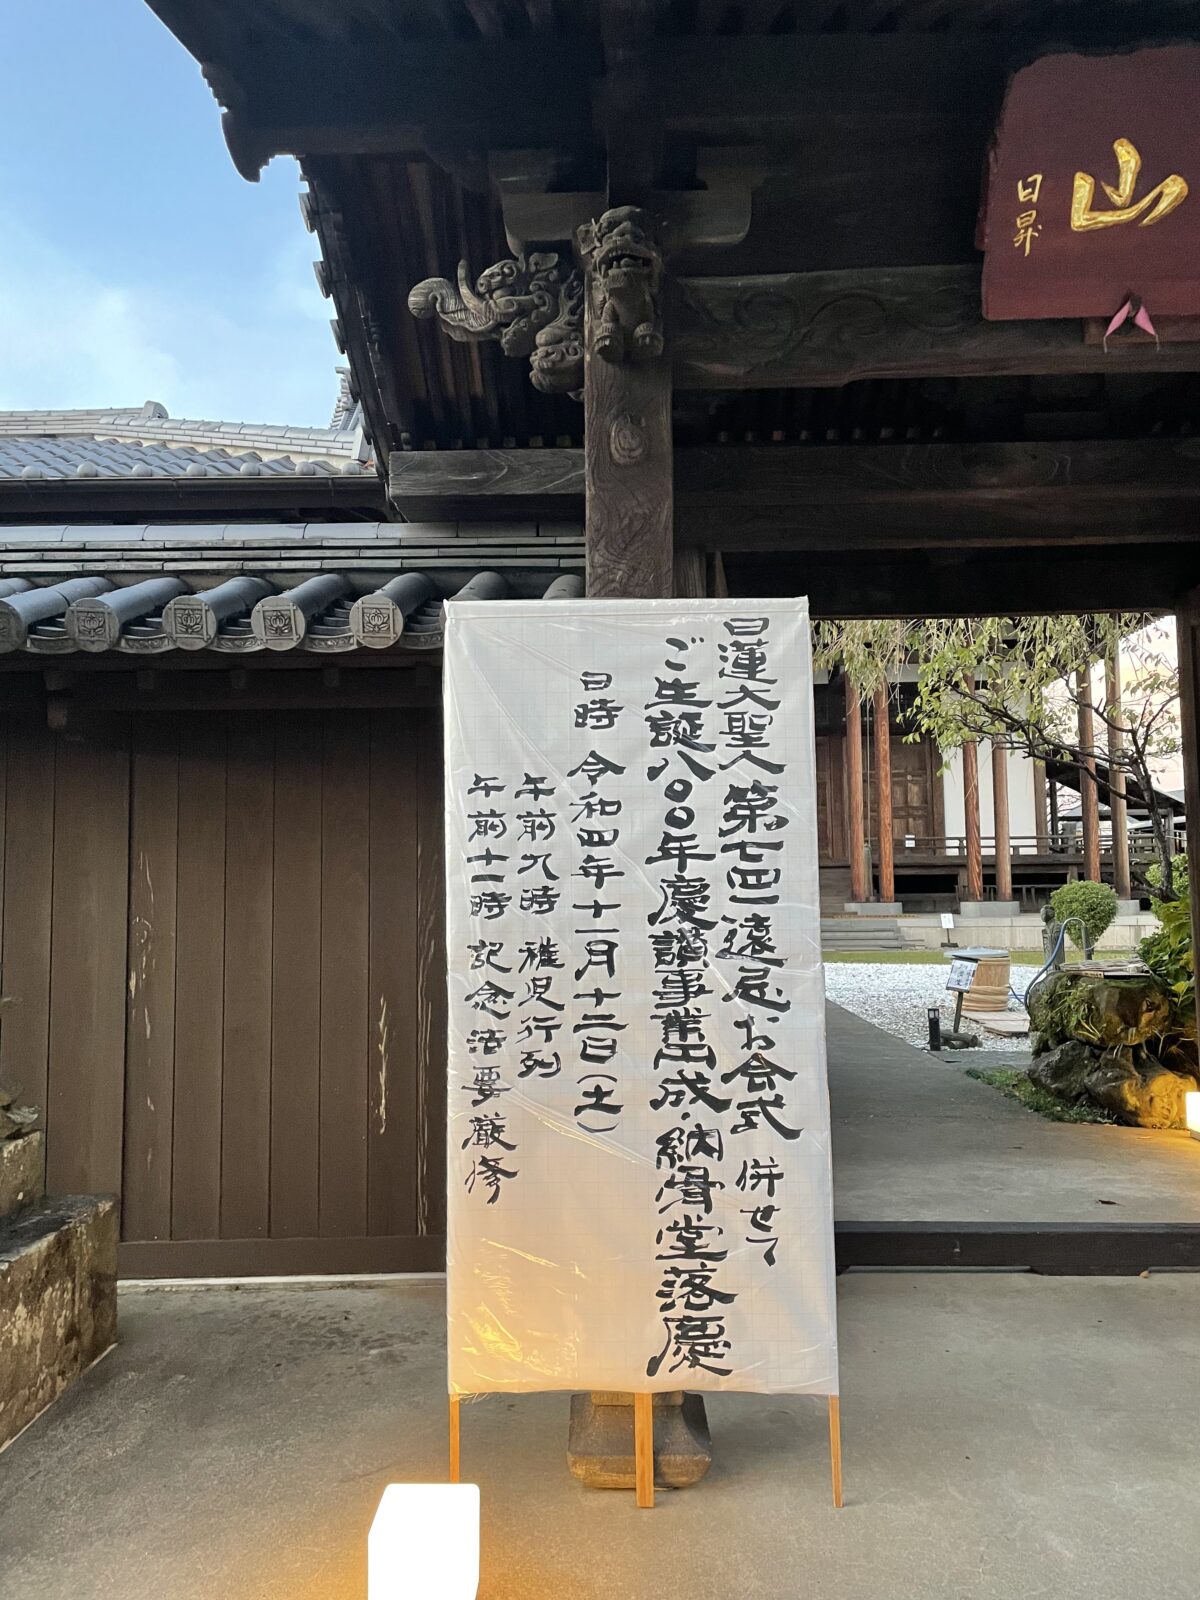 山
日昇
日蓮大聖人第七四一遠忌お会式 併せて
ご生誕八〇〇年慶讃事業円成・納骨堂落慶
日時 令和四年十一月十二日(土)
午前九時 稚児行列
午前十一時 記念法要厳修